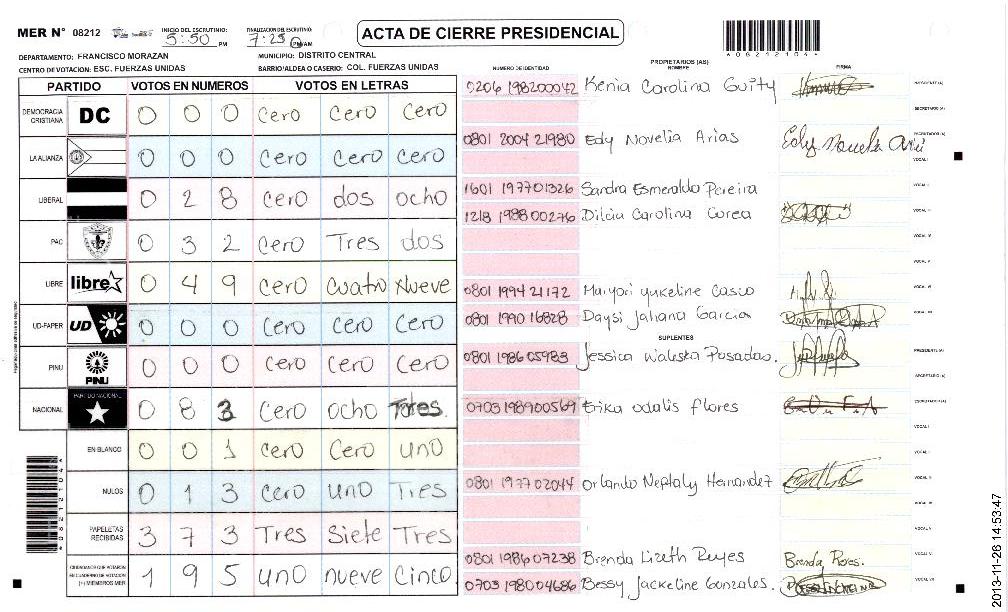 MER N° 08212
INICIO DEL ESCRUTINIO: 5:50 PM
FINALIZACION DEL ESCRUTINIO: 7:23 PM/AM
ACTA DE CIERRE PRESIDENCIAL
DEPARTAMENTO: FRANCISCO MORAZAN
MUNICIPIO: DISTRITO CENTRAL
CENTRO DE VOTACION: ESC. FUERZAS UNIDAS
BARRIO/ALDEA O CASERIO: COL. FUERZAS UNIDAS
PARTIDO VOTOS EN NUMEROS VOTOS EN LETRAS
DEMOCRACIA CRISTIANA DC 0 0 0 Cero Cero Cero
LA ALIANZA 0 0 0 Cero Cero Cero
LIBERAL 0 2 8 Cero dos ocho
PAC 0 3 2 Cero Tres dos
LIBRE libre 0 4 9 Cero Cuatro Nueve
UD-FAPER UD 0 0 0 Cero Cero Cero
PINU PINU 0 0 0 Cero Cero Cero
NACIONAL PARTIDO NACIONAL 0 8 3 Cero ocho Tres.
EN BLANCO 0 0 1 Cero Cero uno
NULOS 0 1 3 Cero uno Tres
PAPELETAS RECIBIDAS 3 7 3 Tres Siete Tres
CIUDADANOS QUE VOTARON EN CUADERNO DE VOTACION (+) MIEMBROS MER 1 9 5 uno nueve Cinco
NUMERO DE IDENTIDAD
PROPIETARIOS (AS)
NOMBRE
FIRMA
0206 198200042 Kenia Carolina Guity PRESIDENTE (A)
SECRETARIO (A)
0801 2004 21980 Edy Novelia Arias ESCRUTADOR (A)
VOCAL I
1601 197701326 Sandra Esmeralda Pereira VOCAL II
1218 1988 00276 Dilcia Carolina Curea VOCAL III
VOCAL IV
VOCAL V
0801 1994 21172 Maryori yukeline Casco VOCAL VI
0801 1990 16828 Daysi Jaliana Garcia VOCAL VII
SUPLENTES
0801 1986 05983 Jessica Waleska Posadas. PRESIDENTE (A)
SECRETARIO (A)
0703 198900569 Erika odalis flores ESCRUTADOR (A)
VOCAL I
VOCAL II
0801 1977 02044 Orlando Neptaly Hernandez
VOCAL IV
VOCAL V
0801 1986 07238 Brenda Lizeth Reyes Brenda Reyes.
0703 1980 04686 Bessy Jackeline Gonzales. VOCAL VII
4082121044
2013-11-26 14:53:47